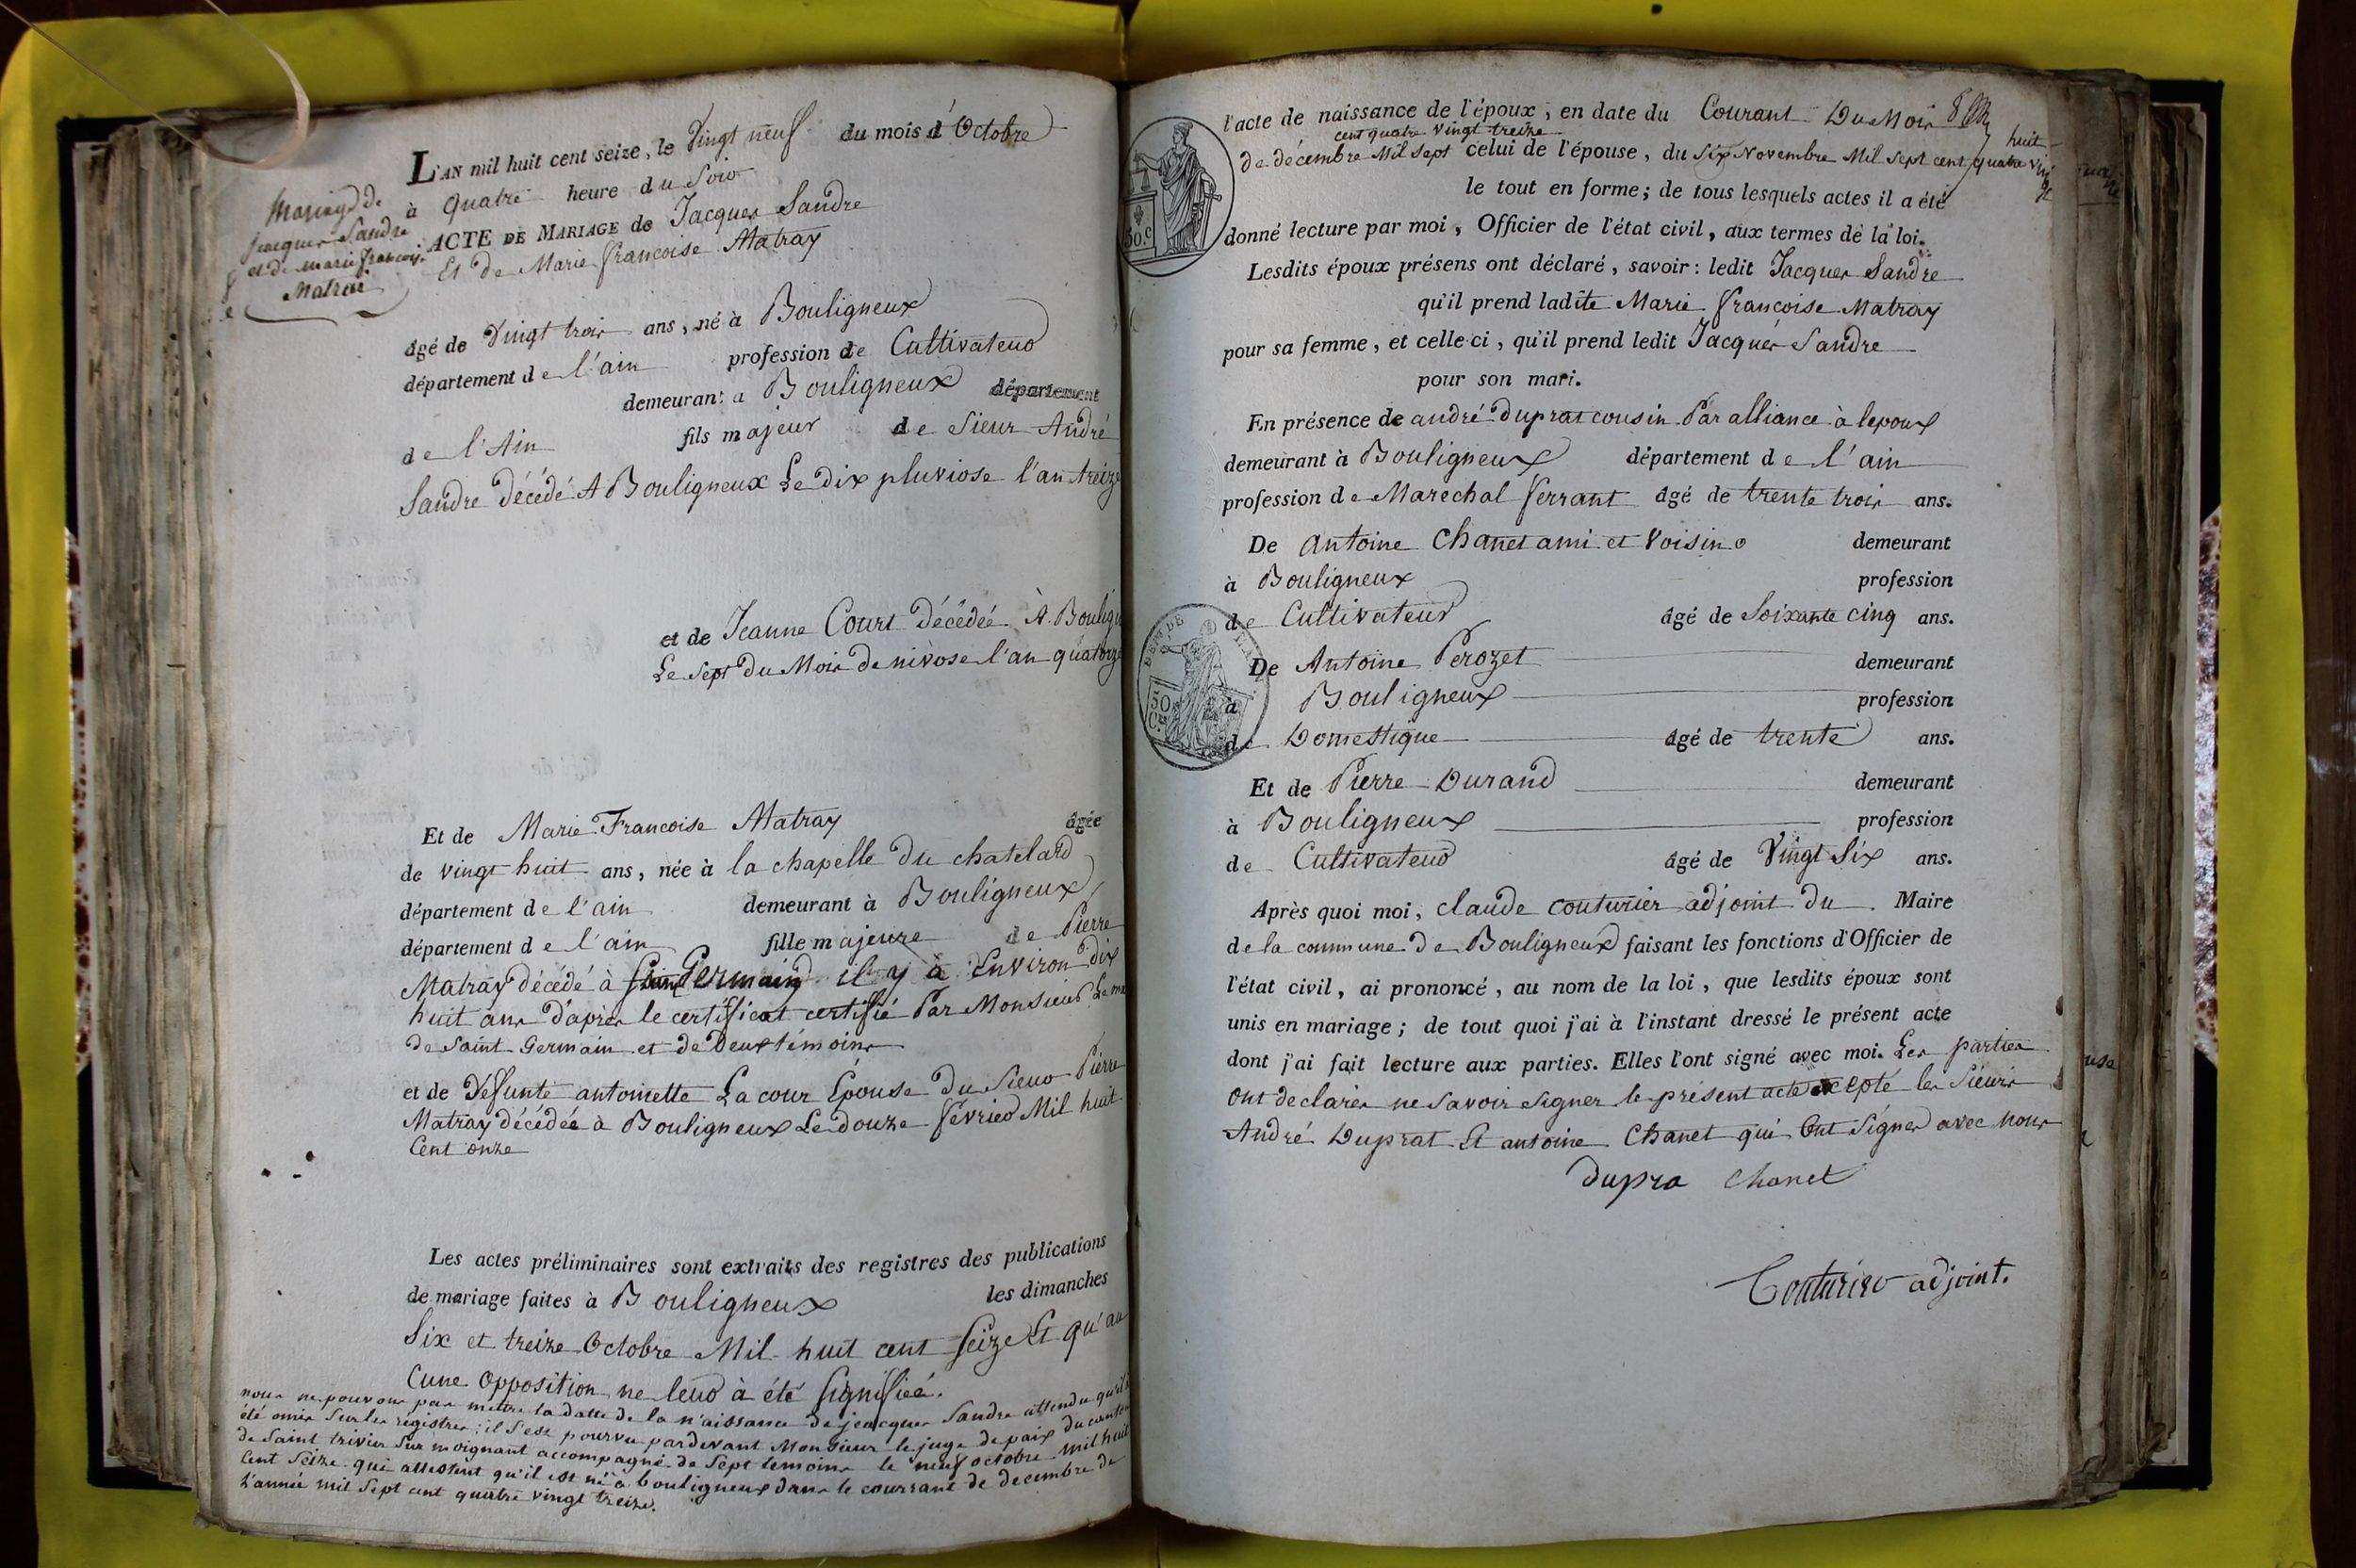 L'AN mil huit cent seize, le Vingt neuf du mois d'Octobre
à Quatre heure du Soir
ACTE DE MARIAGE de Jacques Sandre
Et de Marie francoise Matray
Mariage de
jacques Sandre
et de marie francoise
Matrai
âgé de Vingt trois ans, né à Bouligneux
département de l'ain profession de Cultivateur
demeurant a Bouligneux département
de l'Ain fils majeur de Sieur André
Sandre décédé A Bouligneux Le dix pluviose l'an treize
et de Jeanne Court décédée A Boulign
Le Sept du Mois de nivose l'an quatorze
Et de Marie Francoise Matray âgée
de vingt huit ans, née à la chapelle du chatelard
département de l'ain demeurant à Bouligneux
département de l'ain fille majeure de Pierre
Matray décédé à Saint Germain il y à Environ dix
huit ans d'après le certificat certifié Par Monsieur Le m
de Saint Germain et de Deux témoins
et de Défunte antoinette La cour Epouse du Sieur Pierre
Matray décédée à Bouligneux Le douze février Mil huit
Cent onze
Les actes préliminaires sont extraits des registres des publications
de mariage faites à Bouligneux les dimanches
Six et treize Octobre Mil huit cent Seize Et qu'au
Cune Opposition ne leur à été Signifieé.
nous ne pouvons pas mettre la datte de la n'aissance de jeacques Sandre attendu qu'il
été omis Sur les régistres; il s'est pourvu pardevant Monsieur le juge de paix du canton
de Saint trivier Sur moignant accompagné de Sept temoins le neuf octobre mil huit
Cent Seize qui attestent qu'il est né à bouligneux dans le courrant de decembre de
L'année mil Sept cent quatre vingt treize.
l'acte de naissance de l'époux, en date du Courant Du Mois
cent quatre vingt treize huit
de décembre Mil Sept celui de l'épouse, du Six Novembre Mil Sept cent quatre vin
le tout en forme; de tous lesquels actes il a été
donné lecture par moi, Officier de l'état civil, aux termes de la loi.
Lesdits époux présens ont déclaré, savoir: ledit Jacques Sandre
qu'il prend ladite Marie francoise Matray
pour sa femme, et celle-ci, qu'il prend ledit Jacques Sandre
pour son mari.
En présence de andré Duprat cousin Par alliance à lepoux
demeurant à Bouligneux département de l'ain
profession de Marechal ferrant âgé de trente trois ans.
De Antoine Chanet ami et Voisin demeurant
à Bouligneux profession
de Cultivateur âgé de Soixante cinq ans.
De Antoine Perozet demeurant
à Bouligneux profession
de Domestique âgé de trente ans.
Et de Pierre Durand demeurant
à Bouligneux profession
de Cultivateur âgé de Vingt Six ans.
Après quoi moi, claude couturier adjoint du Maire
de la commune de Bouligneux faisant les fonctions d'Officier de
l'état civil, ai prononcé, au nom de la loi, que lesdits époux sont
unis en mariage; de tout quoi j'ai à l'instant dressé le présent acte
dont j'ai fait lecture aux parties. Elles l'ont signé avec moi. Les parties
Ont declarés ne Savoir Signer le présent acte excepté les Sieurs
André Duprat Et antoine Chanet qui Ont Signer avec nous
dupra chanet
Couturier adjoint.
50.c
50